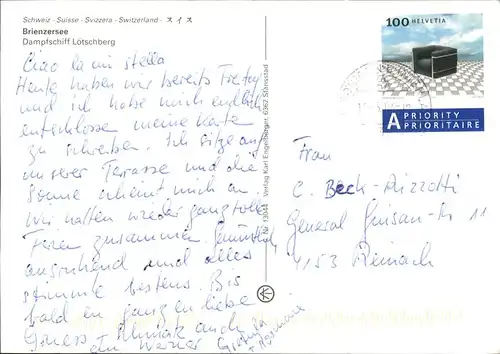 Schweiz - Suisse - Svizzera - Switzerland - スイス
Brienzersee
Dampfschiff Lötschberg
Ciao la mi stella
Heute haben wir bereits Freitag
und ich habe mich endlich
entschlossen meine Karte
zu schreiben. Ich sitze auf
unserer Terrasse und die
Sonne scheint mich an.
Wir hatten wieder ganz tolle
Ferien zusammen. Gemütlich
ausruhend und alles
stimmte bestens. Bis
bald ein ganz liebe
Gruess auch
an Werner
Verlag Karl Engelberger, 6362 Stansstad
100 HELVETIA
A PRIORITY
PRIORITAIRE
Frau
C. Beck-Rizzotti
General Guisan-Str 11
4153 Reinach